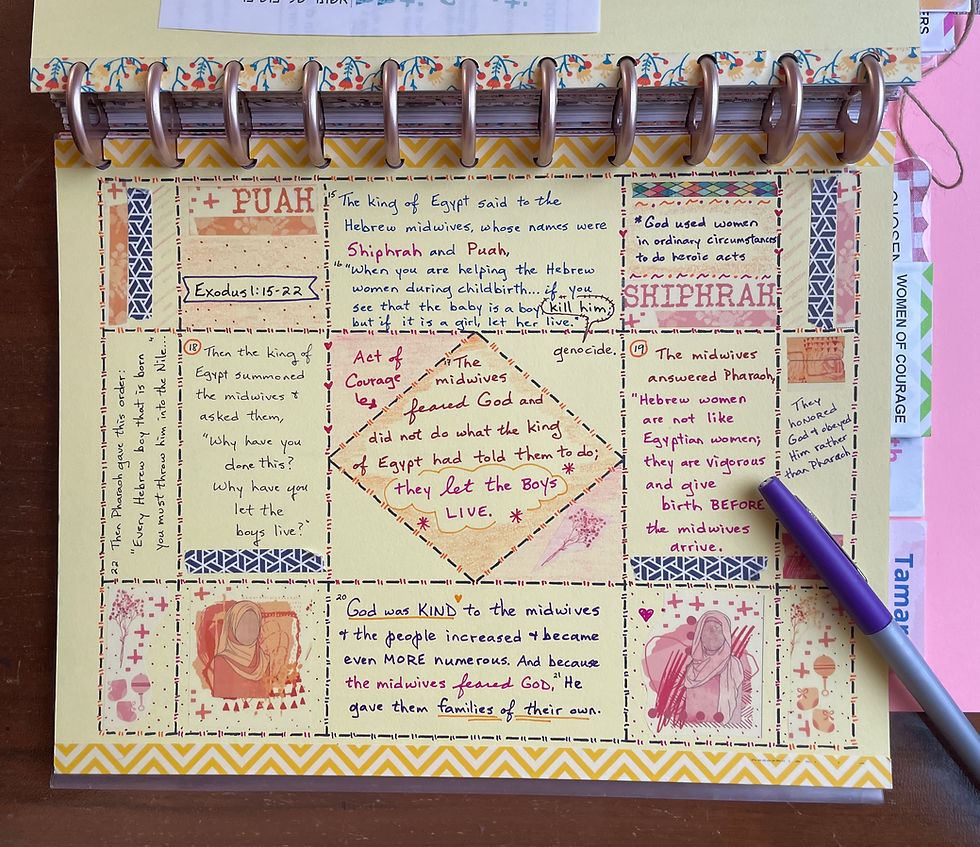 PUAH
Exodus 1:15-22
15 The king of Egypt said to the
Hebrew midwives, whose names were
Shiphrah and Puah,
16 "When you are helping the Hebrew
women during childbirth... if you
see that the baby is a boy kill him;
but if it is a girl, let her live."
genocide.
* God used women
in ordinary circumstances
to do heroic acts
SHIPHRAH
22 Then Pharaoh gave this order:
"Every Hebrew boy that is born
you must throw him into the Nile..."
18 Then the king of
Egypt summoned
the midwives &
asked them,
"Why have you
done this?
Why have you
let the
boys live?"
Act of
Courage
17 The
midwives
feared God and
did not do what the king
of Egypt had told them to do;
they let the Boys
LIVE.
19 The midwives
answered Pharaoh,
"Hebrew women
are not like
Egyptian women;
they are vigorous
and give
birth BEFORE
the midwives
arrive.
They
honored
God & obeyed
Him rather
than Pharaoh
20 God was KIND to the midwives
& the people increased & became
even MORE numerous. And because
the midwives feared GOD, 21 He
gave them families of their own.
ERS
CHOSEN
WOMEN OF COURAGE
th
Tamar